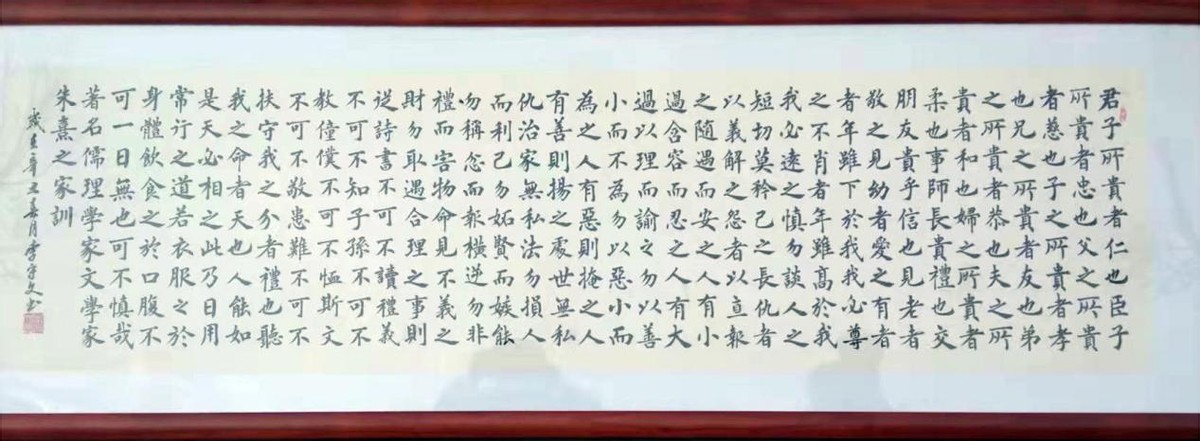 君子所貴者仁也臣子
所貴者忠也父之所貴
者慈也子之所貴者孝
也兄之所貴者友也弟
之所貴者恭也夫之所
貴者和也婦之所貴者
柔也事師長貴禮也交
朋友貴乎信也見老者
敬之見幼者愛之有者
者年雖下於我我必尊
之不肖者年雖高於我
我必遠之慎勿談人之
短切莫矜己之長仇者
以義解之怨者以直報
之隨遇而安之人有小
過含容而忍之人有大
過以理而諭之勿以善
小而不為勿以惡小而
為之人有惡則掩之人
有善則揚之處世無私
仇治家無私法勿損人
而利己勿妬賢而嫉能
勿稱忿而報橫逆勿非
禮而害物命見不義之
財勿取遇合理之事則
從詩書不可不讀禮義
不可不知子孫不可不
教僮僕不可不恤斯文
不可不敬患難不可不
扶守我之分者禮也聽
我之命者天也人能如
是天必相之此乃日用
常行之道若衣服之於
身體飲食之於口腹不
可一日無也可不慎哉
著名儒理學家文學家
朱熹之家訓
歲在辛丑春月李文書